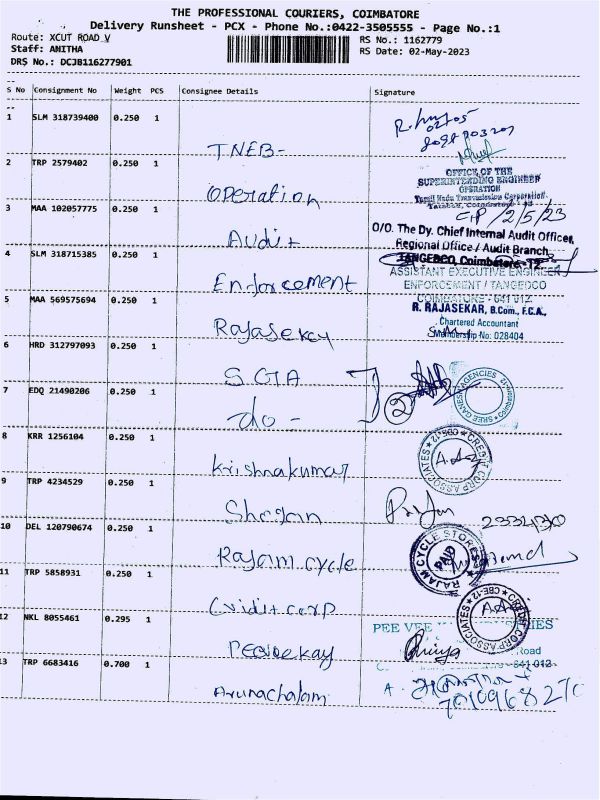 THE PROFESSIONAL COURIERS, COIMBATORE
Delivery Runsheet - PCX - Phone No.:0422-3505555 - Page No.:1
Route: XCUT ROAD V
RS No.: 1162779
Staff: ANITHA
RS Date: 02-May-2023
DRS No.: DCJB116277901
S No Consignment No Weight PCS Consignee Details Signature
1 SLM 318739400 0.250 1
TNEB-
2 TRP 2579402 0.250 1
OFFICE OF THE
SUPERINTENDING ENGINEER
OPERATION
Tamil Nadu Transmission Corporation
Operation
3 MAA 102057775 0.250 1
2/5/23
O/O. The Dy. Chief Internal Audit Officer,
Audit
Regional Office / Audit Branch,
4 SLM 318715385 0.250 1
TANGEDCO, Coimbatore - 12
ASSISTANT EXECUTIVE ENGINEER
Enforcement
ENFORCEMENT / TANGEDCO
COIMBATORE - 641 012
5 MAA 569575694 0.250 1
R. RAJASEKAR, B.Com., F.C.A.,
Chartered Accountant
Membership No: 028404
6 HRD 312797093 0.250 1
SGA
2
SREE GANESH AGENCIES
7 EDQ 21490206 0.250 1
do -
8 KRR 1256104 0.250 1
CREDIT CORP ASSOCIATES CBE-12
Krishnakumar
9 TRP 4234529 0.250 1
10 DEL 120790674 0.250 1
RAJAM CYCLE STORES
PAID
Rajam cycle
11 TRP 5858931 0.250 1
CREDIT CORP ASSOCIATES CBE-12
Cridit corp
12 NKL 8055461 0.295 1
PEE VEE
IES
Road
641 012
Peevee kay
13 TRP 6683416 0.700 1
Arunachalam